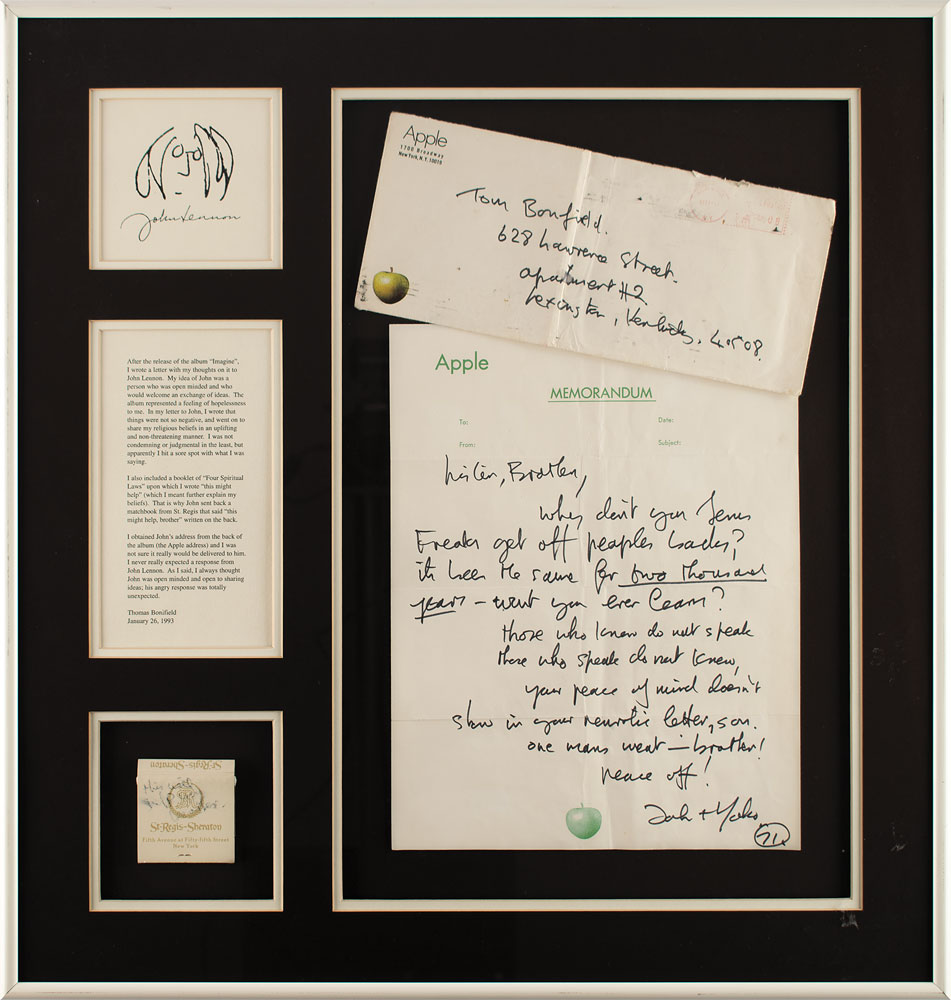 John Lennon
After the release of the album "Imagine",
I wrote a letter with my thoughts on it to
John Lennon. My idea of John was a
person who was open minded and who
would welcome an exchange of ideas. The
album represented a feeling of hopelessness
to me. In my letter to John, I wrote that
things were not so negative, and went on to
share my religious beliefs in an uplifting
and non-threatening manner. I was not
condemning or judgmental in the least, but
apparently I hit a sore spot with what I was
saying.
I also included a booklet of "Four Spiritual
Laws" upon which I wrote "this might
help" (which I meant further explain my
beliefs). That is why John sent back a
matchbook from St. Regis that said "this
might help, brother" written on the back.
I obtained John's address from the back of
the album (the Apple address) and I was
not sure it really would be delivered to him.
I never really expected a response from
John Lennon. As I said, I always thought
John was open minded and open to sharing
ideas; his angry response was totally
unexpected.
Thomas Bonifield
January 26, 1993
St·Regis-Sheraton
this might
St·Regis-Sheraton
Fifth Avenue at Fifty-fifth Street
New York
Apple
1700 Broadway
New York, N.Y. 10019
Tom Bonfield.
628 Lawrence Street.
apartment #2
Lexington, Kentucky. 40508
Apple
MEMORANDUM
To:
Date:
From:
Subject:
Listen, Brother,
why don't you Jesus
Freaks get off peoples backs?
its been the same for two thousand
years - won't you ever learn?
those who know do not speak
those who speak do not know,
your peace of mind doesn't
show in your neurotic letter, son.
one mans meat — brother!
peace off!
John + Yoko
71